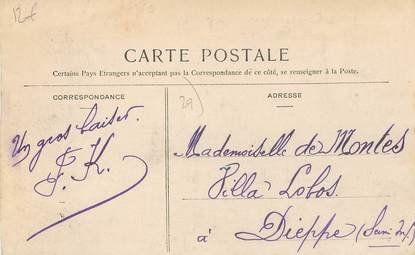 12€
CARTE POSTALE
Certains Pays Etrangers n'acceptent pas la Correspondance de ce côté, se renseigner à la Poste.
CORRESPONDANCE
29)
ADRESSE
Un gros baiser.
F. K.
Mademoiselle de Montes
Villa Lobos.
à Dieppe (Seine Inf.)